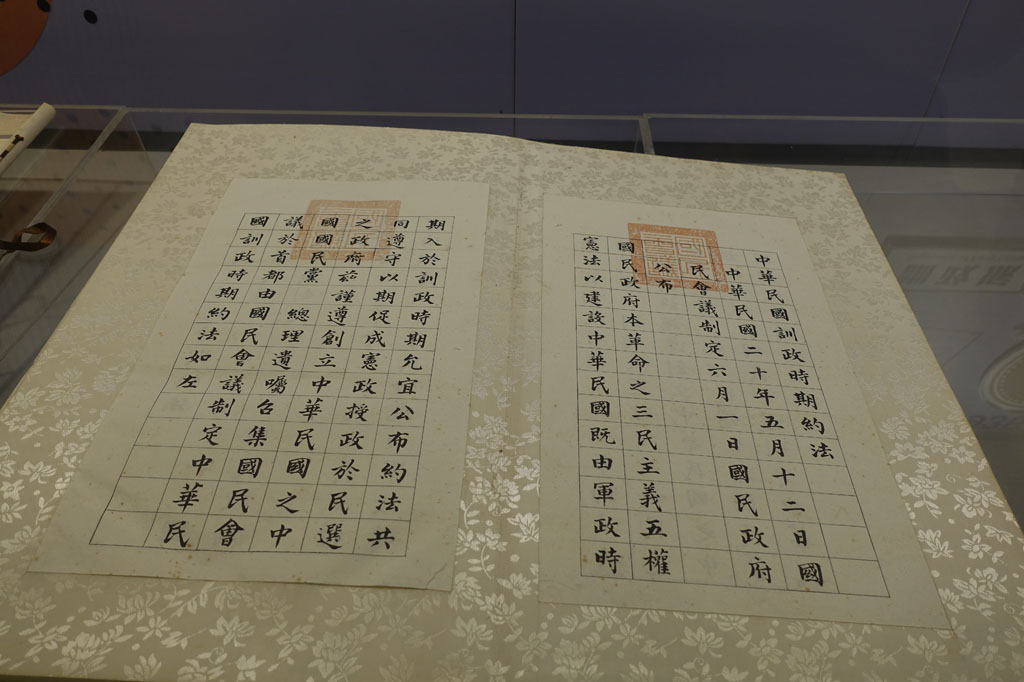 中華民國訓政時期約法
中華民國二十年五月十二日國
民會議制定六月一日國民政府
公布
國民政府本革命之三民主義五權
憲法以建設中華民國既由軍政時
期入於訓政時期允宜公布約法共
同遵守以期促成憲政授政於民選
之政府茲謹遵創立中華民國之中
國國民黨 總理遺囑召集國民會
議於首都由國民會議制定中華民
國訓政時期約法如左